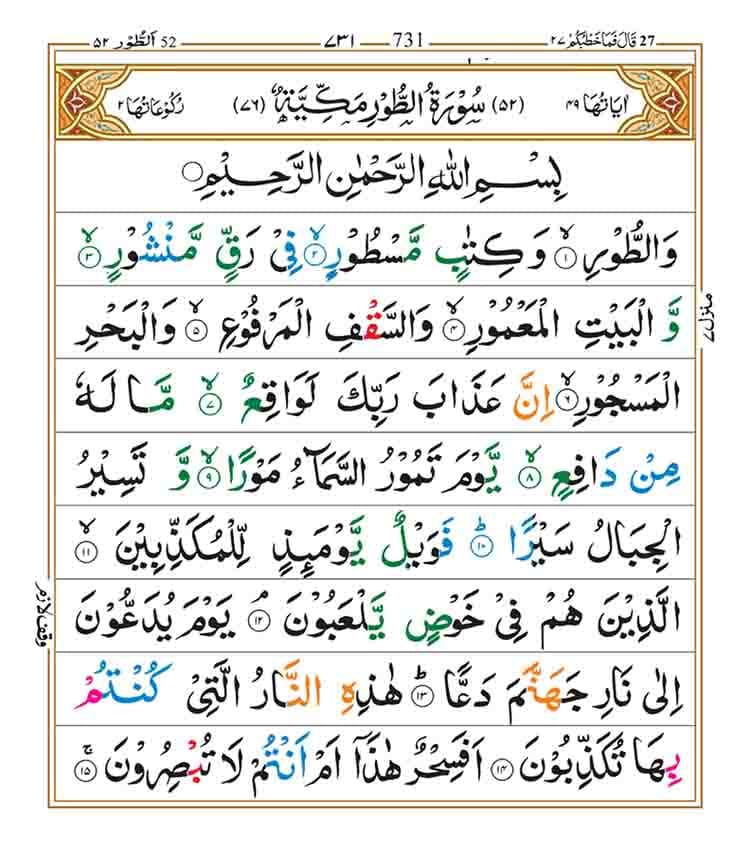 27 قَالَ فَمَا خَطْبُكُمْ ٢٧ 731 ٧٣١ 52 اَلطُّوْر ٥٢
اٰيَاتُهَا ٤٩ (٥٢) سُوْرَةُ الطُّوْرِ مَكِّيَّةٌ (٧٦) رُكُوْعَاتُهَا ٢
بِسْمِ اللّٰهِ الرَّحْمٰنِ الرَّحِيْمِ
وَالطُّوْرِ ۙ‏﴿١﴾ وَكِتٰبٍ مَّسْطُوْرٍ ۙ‏﴿٢﴾ فِىْ رَقٍّ مَّنْشُوْرٍ ۙ‏﴿٣﴾
وَّ الْبَيْتِ الْمَعْمُوْرِ ۙ‏﴿٤﴾ وَالسَّقْفِ الْمَرْفُوْعِ ۙ‏﴿٥﴾ وَالْبَحْرِ
منزل ٧
الْمَسْجُوْرِ ۙ‏﴿٦﴾ اِنَّ عَذَابَ رَبِّكَ لَوَاقِعٌ ۙ‏﴿٧﴾ مَّا لَهٗ
مِنْ دَافِعٍ ۙ‏﴿٨﴾ يَّوْمَ تَمُوْرُ السَّمَآءُ مَوْرًا ۙ‏﴿٩﴾ وَّ تَسِيْرُ
الْجِبَالُ سَيْرًا ؕ‏﴿١٠﴾ فَوَيْلٌ يَّوْمَئِذٍ لِّلْمُكَذِّبِيْنَ ۙ‏﴿١١﴾
الَّذِيْنَ هُمْ فِىْ خَوْضٍ يَّلْعَبُوْنَ ۘ‏﴿١٢﴾ يَوْمَ يُدَعُّوْنَ
وقف لازم
اِلٰى نَارِ جَهَنَّمَ دَعًّا ؕ‏﴿١٣﴾ هٰذِهِ النَّارُ الَّتِىْ كُنْتُمْ
بِهَا تُكَذِّبُوْنَ ﴿١٤﴾ اَفَسِحْرٌ هٰذَاۤ اَمْ اَنْتُمْ لَا تُبْصِرُوْنَ ۚ‏﴿١٥﴾